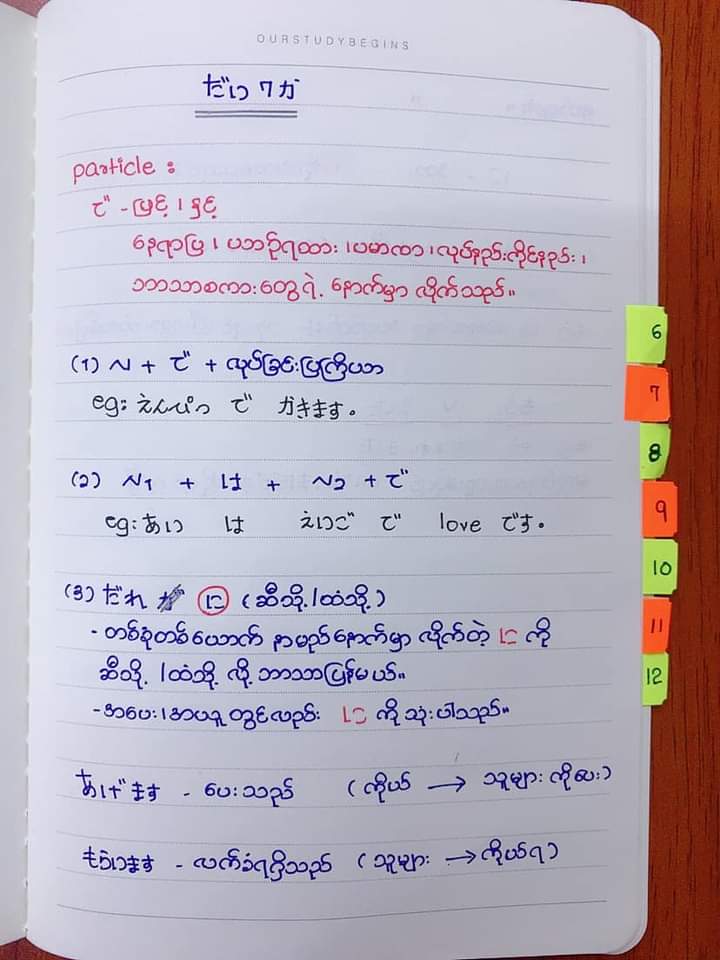 OURSTUDYBEGINS
だい 7 か
particle :
で - ဖြင့် ၊ နှင့်
နေရာပြ ၊ ယာဉ်ရထား ၊ပမာဏ ၊လုပ်နည်းကိုင်နည်း ၊
ဘာသာစကားတွေရဲ့ နောက်မှာ လိုက်သည်။
(1) N + で + လုပ်ခြင်းပြကြိယာ
eg: えんぴつ で かきます。
(2) N1 + は + N2 + で
eg: あい は えいご で love です。
(3) だれ に (ဆီသို့ ၊ထံသို့)
- တစ်စုံတစ်ယောက် နာမည်နောက်မှာ လိုက်တဲ့ に ကို
ဆီသို့ ၊ထံသို့ လို့ ဘာသာပြန်မယ်။
- အပေး ၊အယူ တွင်လည်း に ကို သုံးပါသည်။
あげます - ပေးသည် (ကိုယ် → သူများ ကိုပေး)
もらいます - လက်ခံရရှိသည် (သူများ → ကိုယ်ရ)
6
7
8
9
10
11
12